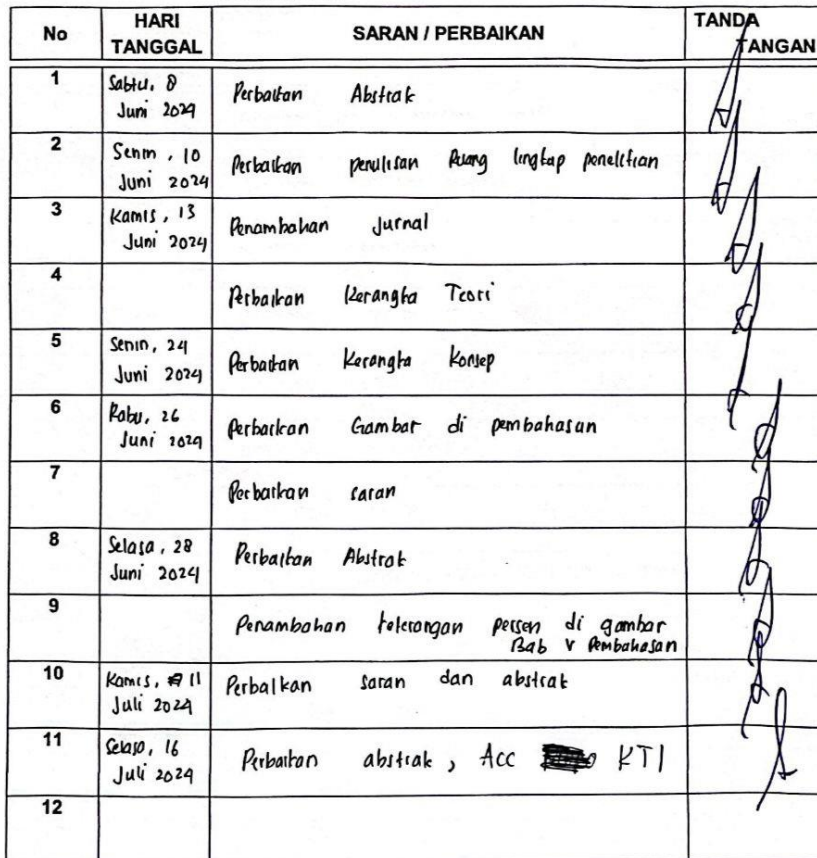 No HARI TANGGAL SARAN / PERBAIKAN TANDA TANGAN
1 Sabtu, 8 Juni 2024 Perbaikan Abstrak
2 Senin, 10 Juni 2024 Perbaikan penulisan Ruang lingkap penelitian
3 Kamis, 13 Juni 2024 Penambahan Jurnal
4 Perbaikan Kerangka Teori
5 Senin, 24 Juni 2024 Perbaikan Kerangka Konsep
6 Rabu, 26 Juni 2024 Perbaikan Gambar di pembahasan
7 Perbaikan saran
8 Selasa, 28 Juni 2024 Perbaikan Abstrak
9 Penambahan keterangan persen di gambar
Bab V Pembahasan
10 Kamis, 11 Juli 2024 Perbaikan saran dan abstrak
11 Selasa, 16 Juli 2024 Perbaikan abstrak, Acc KTI
12